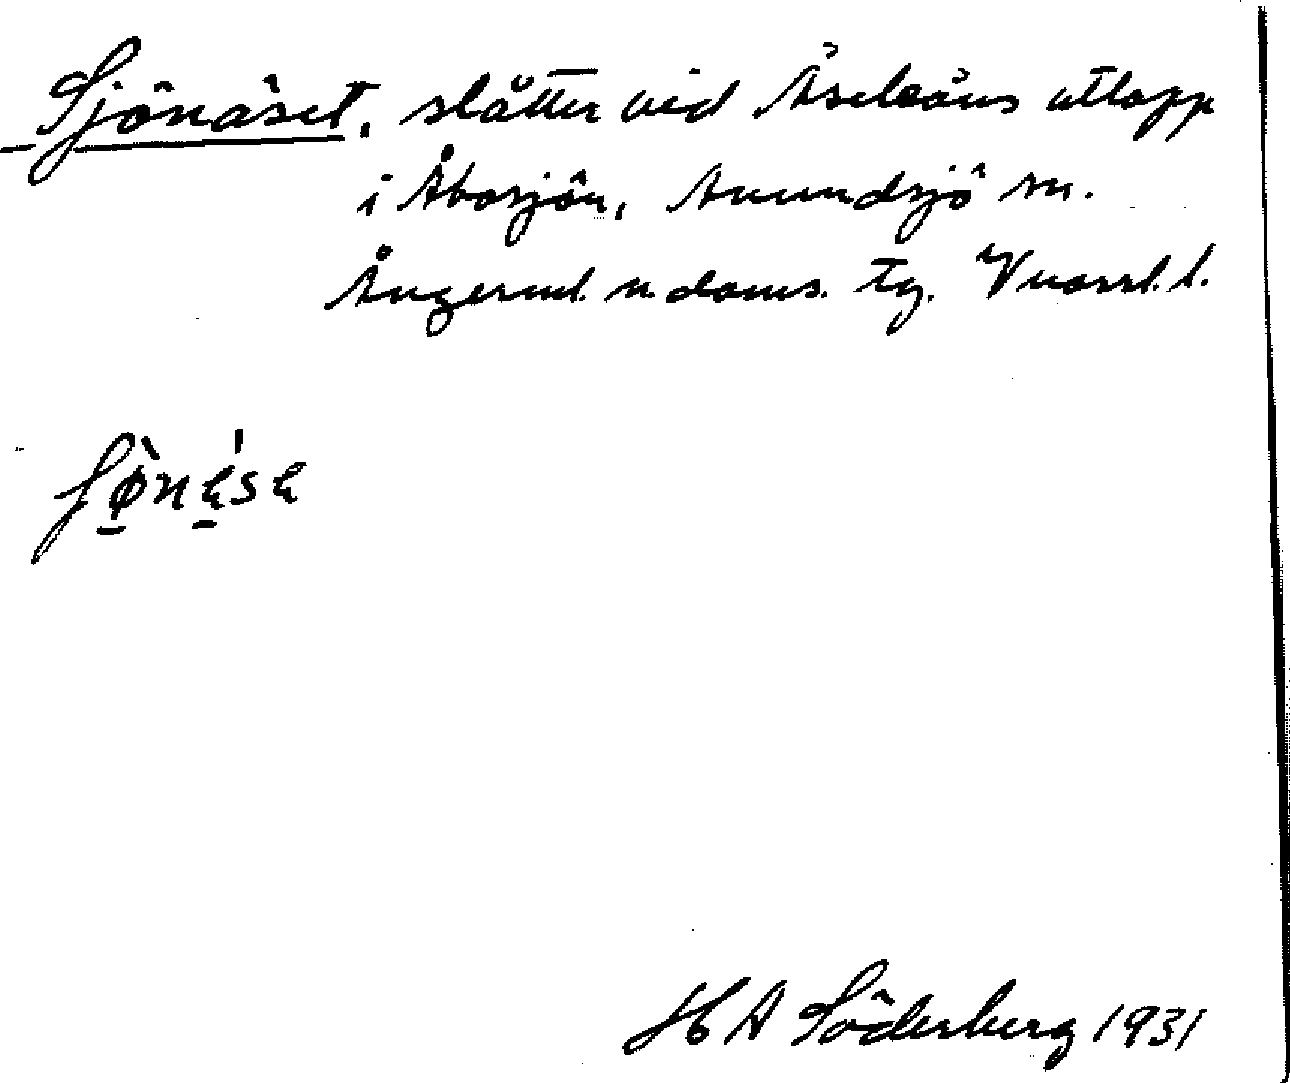 Sjönäset, slåtter vid Åseleåns utlopp
i Åbosjön, Anundsjö sn.
Ångerml. n. doms. tg. Vnorrl. l.
HA Söderberg 1931